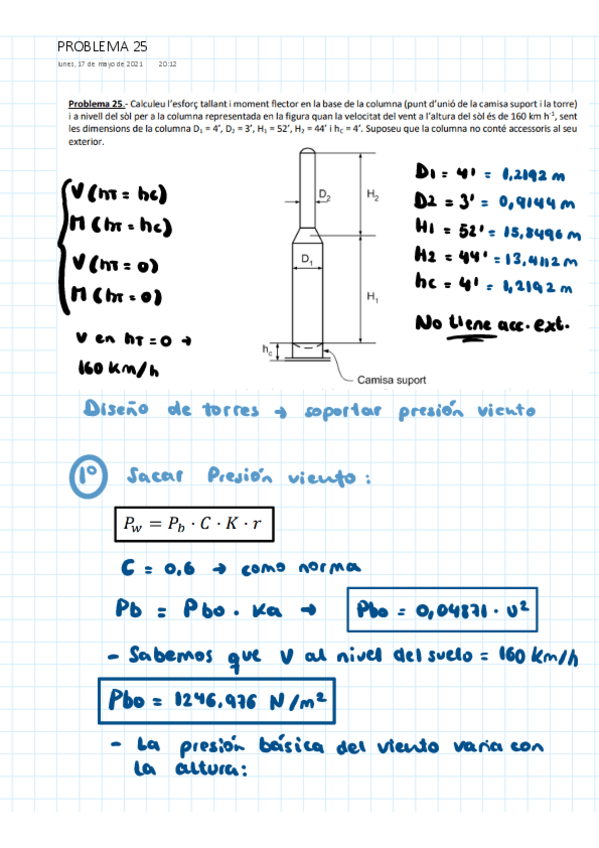 PROBLEMA 25
lunes, 17 de mayo de 2021 20:12
Problema 25.- Calculeu l'esforç tallant i moment flector en la base de la columna (punt d'unió de la camisa suport i la torre)
i a nivell del sòl per a la columna representada en la figura quan la velocitat del vent a l'altura del sòl és de 160 km h⁻¹, sent
les dimensions de la columna D₁ = 4', D₂ = 3', H₁ = 52', H₂ = 44' i h_C = 4'. Suposeu que la columna no conté accessoris al seu
exterior.
V (hT = hc)
M (hT = hc)
V (hT = 0)
M (hT = 0)
V en hT = 0 →
160 km/h
D₂
H₂
D₁
H₁
h_c
Camisa suport
D1 = 4' = 1,2192 m
D2 = 3' = 0,9144 m
H1 = 52' = 15,8496 m
H2 = 44' = 13,4112 m
hc = 4' = 1,2192 m
No tiene acc. ext.
Diseño de torres → soportar presión viento
1º Sacar Presión viento:
P_w = P_b · C · K · r
C = 0,6 → como norma
Pb = Pbo · Ka → Pbo = 0,04871 · v²
- Sabemos que V al nivel del suelo = 160 km/h
Pbo = 1246,976 N/m²
- La presión básica del viento varia con
la altura: